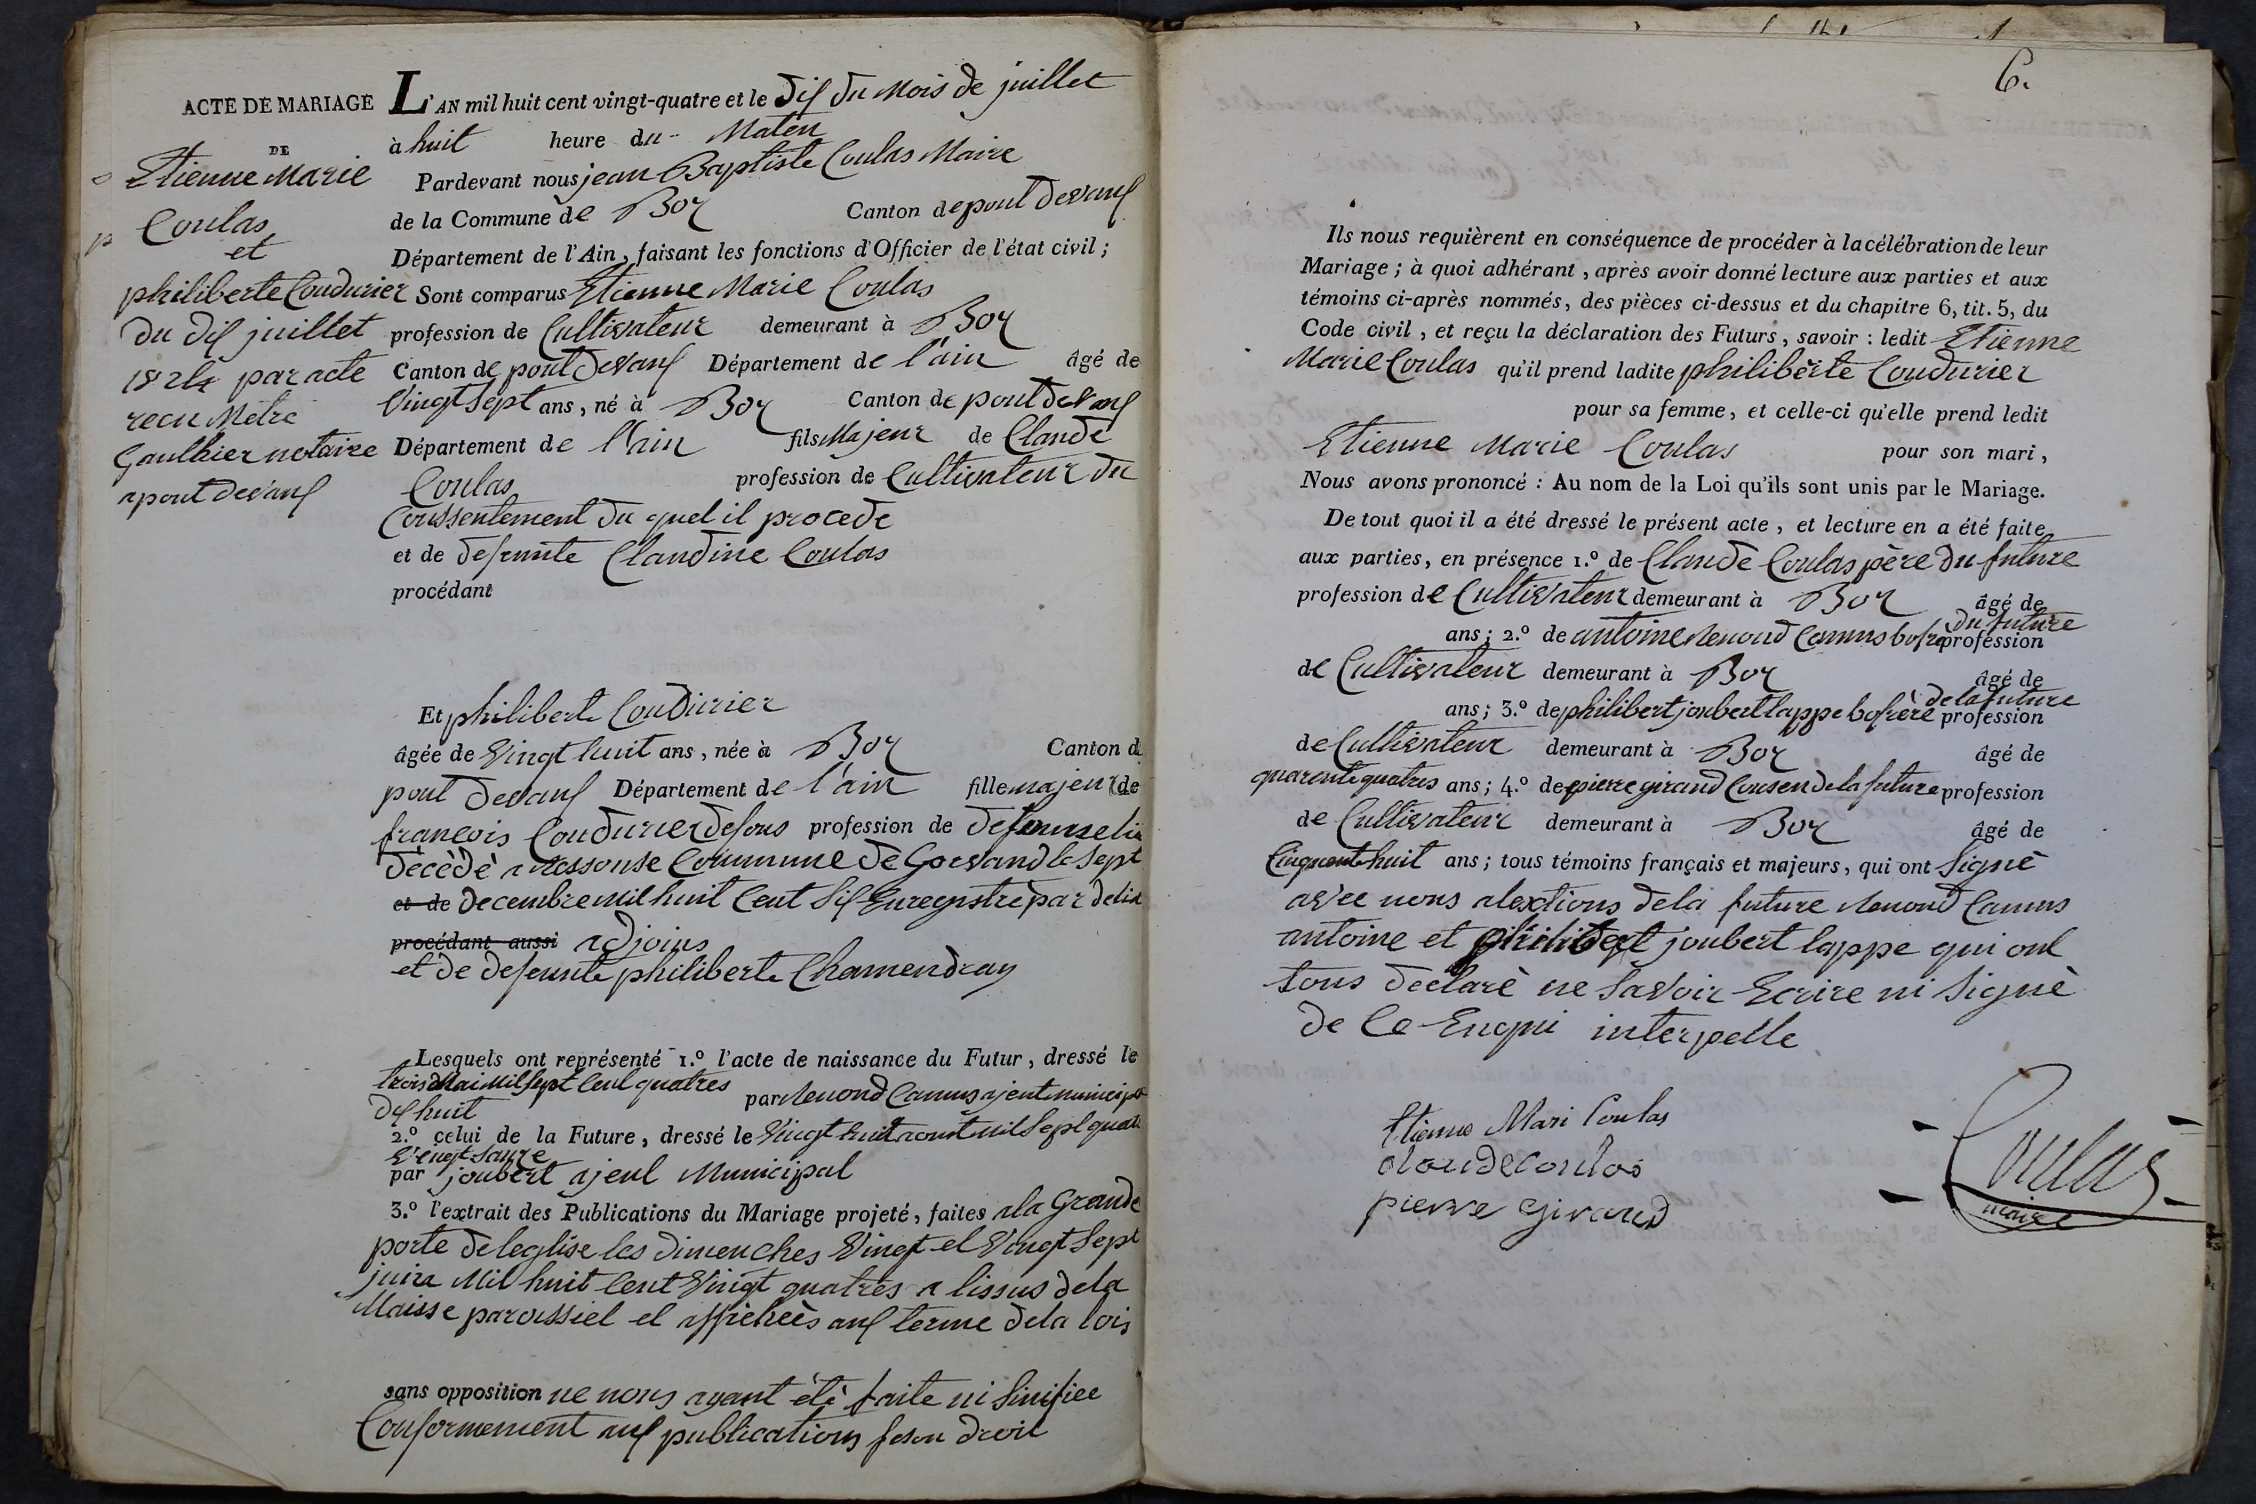 ACTE DE MARIAGE
DE
Etienne Marie
Coulas
et
philiberte Coudurier
du dix juillet
1824 par acte
recu Mètre
Gaulhier notaire
a pont devaux
L'AN mil huit cent vingt-quatre et le dix du Mois de juillet
à huit heure du Maten
Pardevant nous jean Baptiste Coulas Maire
de la Commune de Boz Canton de pont devaux
Département de l'Ain, faisant les fonctions d'Officier de l'état civil;
Sont comparus Etienne Marie Coulas
profession de Cultivateur demeurant à Boz
Canton de pont devaux Département de l'ain âgé de
Vingt Sept ans, né à Boz Canton de pont devaux
Département de l'ain fils Majeur de Claude
Coulas profession de Cultivateur du
Conssentement du quel il procede
et de defunte Claudine Coulas
procédant
Et philiberte Coudurier
âgée de Vingt huit ans, née à Boz Canton d
pont devaux Département de l'ain fille majeur de
francois Coudurier defous profession de
décèdè a rossonse Commune de Gorvand le Sept
et de decembre mil huit Cent Six Enregistre par
procédant aussi adjoins
et de defunte philiberte Chamendray
Lesquels ont représenté 1.º l'acte de naissance du Futur, dressé le
trois Mai Mil Sept Cent quatres
par Renoud Camus ajent municipa
dix huit
2.º celui de la Future, dressé le Vingt huit aoust mil Sept quatr
Vengt Saure
par joubert ajent Municipal
3.º l'extrait des Publications du Mariage projeté, faites a la Grande
porte de leglise les dimenches Vingt et Vingt Sept
juin Mil huit Cent Vingt quatres a lissus de la
Maisse paroissiel et affichèès aux terme de la lois
sans opposition ne nous ayant étè faite ni Sinifiee
Conformement aux publications son droit
6.
Ils nous requièrent en conséquence de procéder à la célébration de leur
Mariage; à quoi adhérant, après avoir donné lecture aux parties et aux
témoins ci-après nommés, des pièces ci-dessus et du chapitre 6, tit. 5, du
Code civil, et reçu la déclaration des Futurs, savoir: ledit Etienne
Marie Coulas qu'il prend ladite philibèrte Coudurier
pour sa femme, et celle-ci qu'elle prend ledit
Etienne Marie Coulas pour son mari,
Nous avons prononcé: Au nom de la Loi qu'ils sont unis par le Mariage.
De tout quoi il a été dressé le présent acte, et lecture en a été faite
aux parties, en présence 1.º de Claude Coulas père du future
profession de Cultivateur demeurant à Boz âgé de
du future
ans; 2.º de antoine Renoud Camus bofrè profession
de Cultivateur demeurant à Boz âgé de
de la future
ans; 3.º de philibert joubert lappe bofrère profession
de Cultivateur demeurant à Boz âgé de
quarente quatres ans; 4.º de pierre giraud Cousen de la future profession
de Cultivateur demeurant à Boz âgé de
Cinquente huit ans; tous témoins français et majeurs, qui ont Signè
avec nous alextions de la future Renoud Camus
antoine et philibert joubert lappe qui ont
tous declarè ne savoir Ecrire ni Signè
de Ce Enqui interpelle
Etienne Mari Coulas
Claude Coulas
pierre giraud
Coulas
maire